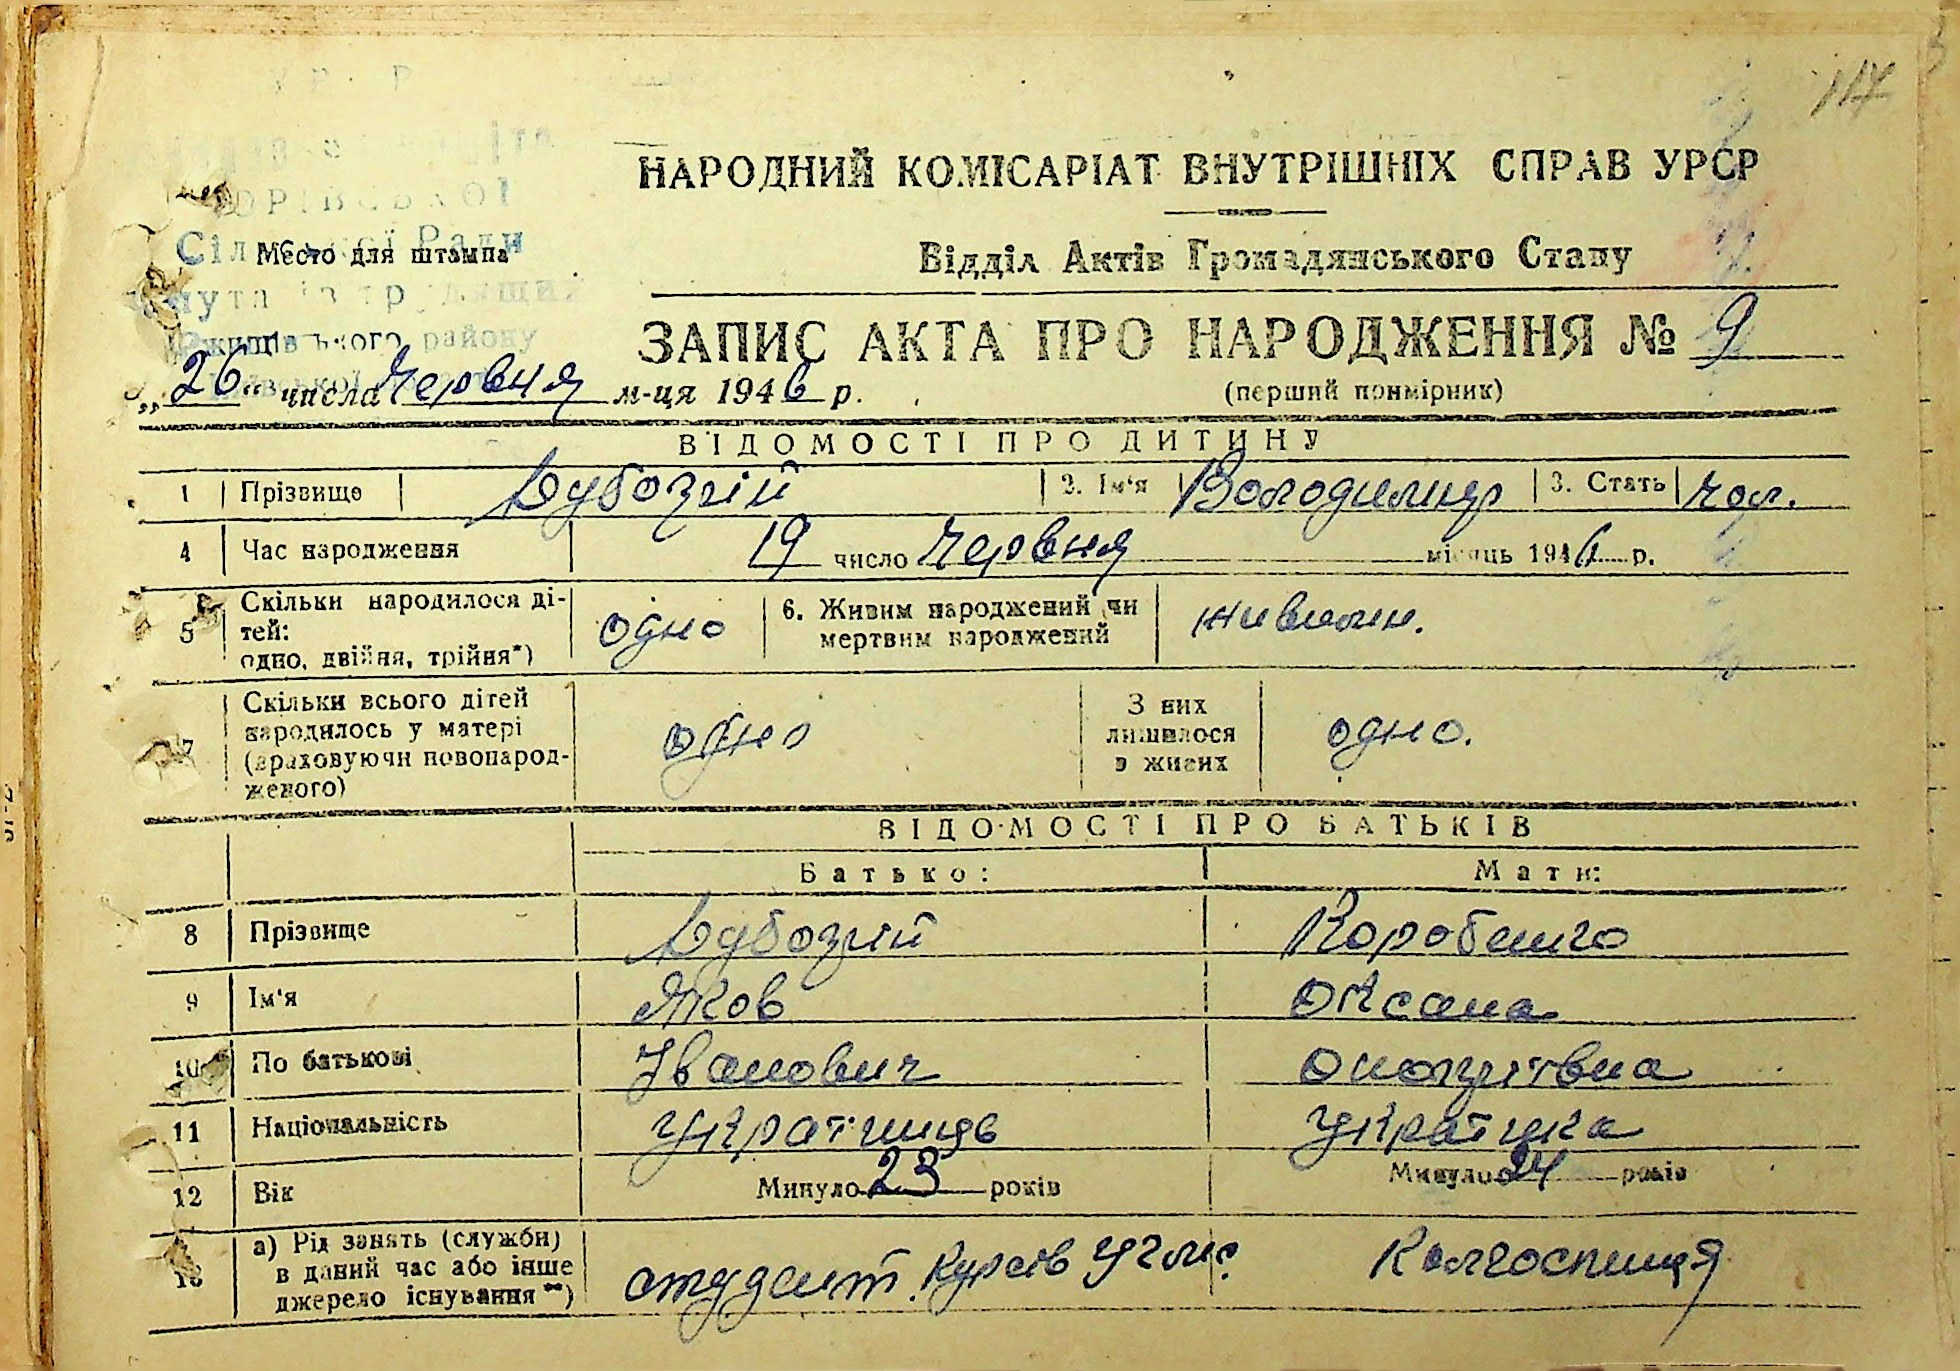 117
НАРОДНИЙ КОМІСАРІАТ ВНУТРІШНІХ СПРАВ УРСР
Сільської Ради
Место для штампа
Відділ Актів Громадянського Стану
району
ЗАПИС АКТА ПРО НАРОДЖЕННЯ № 9
„26“ числа Червня м-ця 1946 р.
(перший примірник)
ВІДОМОСТІ ПРО ДИТИНУ
1 Прізвище Дубозгій 2. Ім'я Володимир 3. Стать чол.
4 Час народження 19 число Червня місяць 1946 р.
5 Скільки народилося ді-
тей:
одно, двійня, трійня*) одно 6. Живим народжений чи
мертвим народжений живим.
7 Скільки всього дітей
народилось у матері
(враховуючи новонарод-
женого) одно З них
лишилося
в живих одно.
ВІДОМОСТІ ПРО БАТЬКІВ
Батько: Мати:
8 Прізвище Дубозгій Коробенко
9 Ім'я Яков Оксана
10 По батькові Іванович Онопрієвна
11 Національність Українець Українка
12 Вік Минуло 23 років Минуло 24 років
13 а) Рід занять (служби)
в даний час або інше
джерело існування **) студент. Курсів Колгоспниця